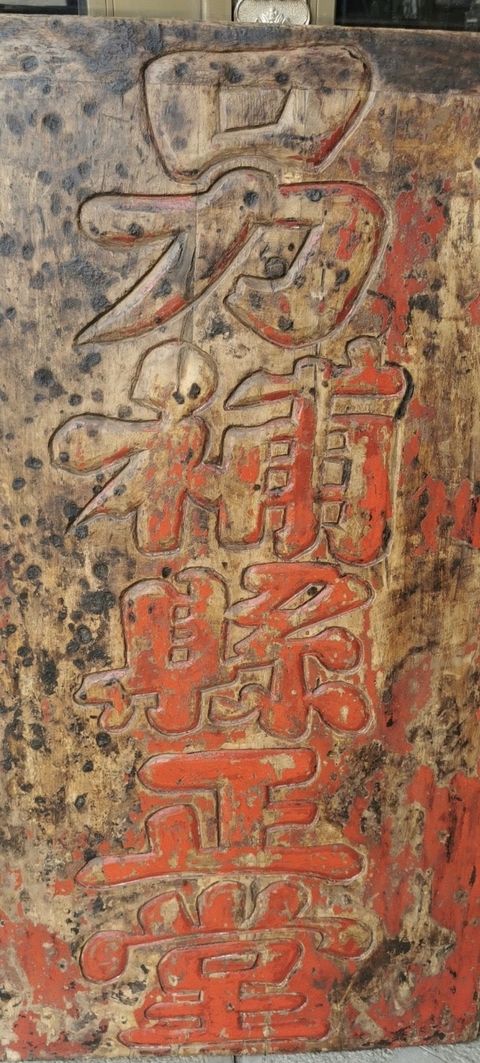 易補縣正堂